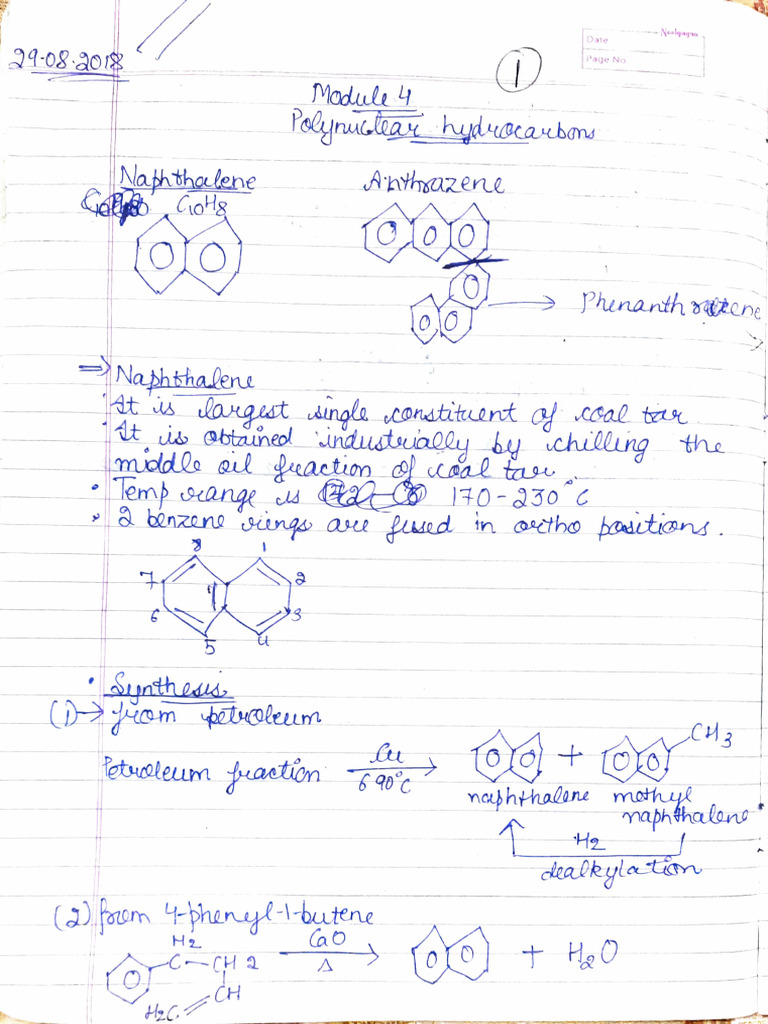 29.08.2018
Neelgagan
Date
Page No
1
Module 4
Polynuclear hydrocarbons
Naphthalene
Anthrazene
C10H8
Phenanthrene
⇒ Naphthalene
· It is largest single constituent of coal tar
· It is obtained industrially by chilling the
middle oil fraction of coal tar.
• Temp range is 170-230°C
• 2 benzene rings are fused in ortho positions.
8 1
7 2
6 3
5 4
• Synthesis
(1)→ from petroleum
Petroleum fraction Cu 690°C → + CH3
naphthalene methyl
naphthalene
H2
dealkylation
(2) from 4-phenyl-1-butene
H2 CaO
C-CH2 Δ → + H2O
CH
H2C